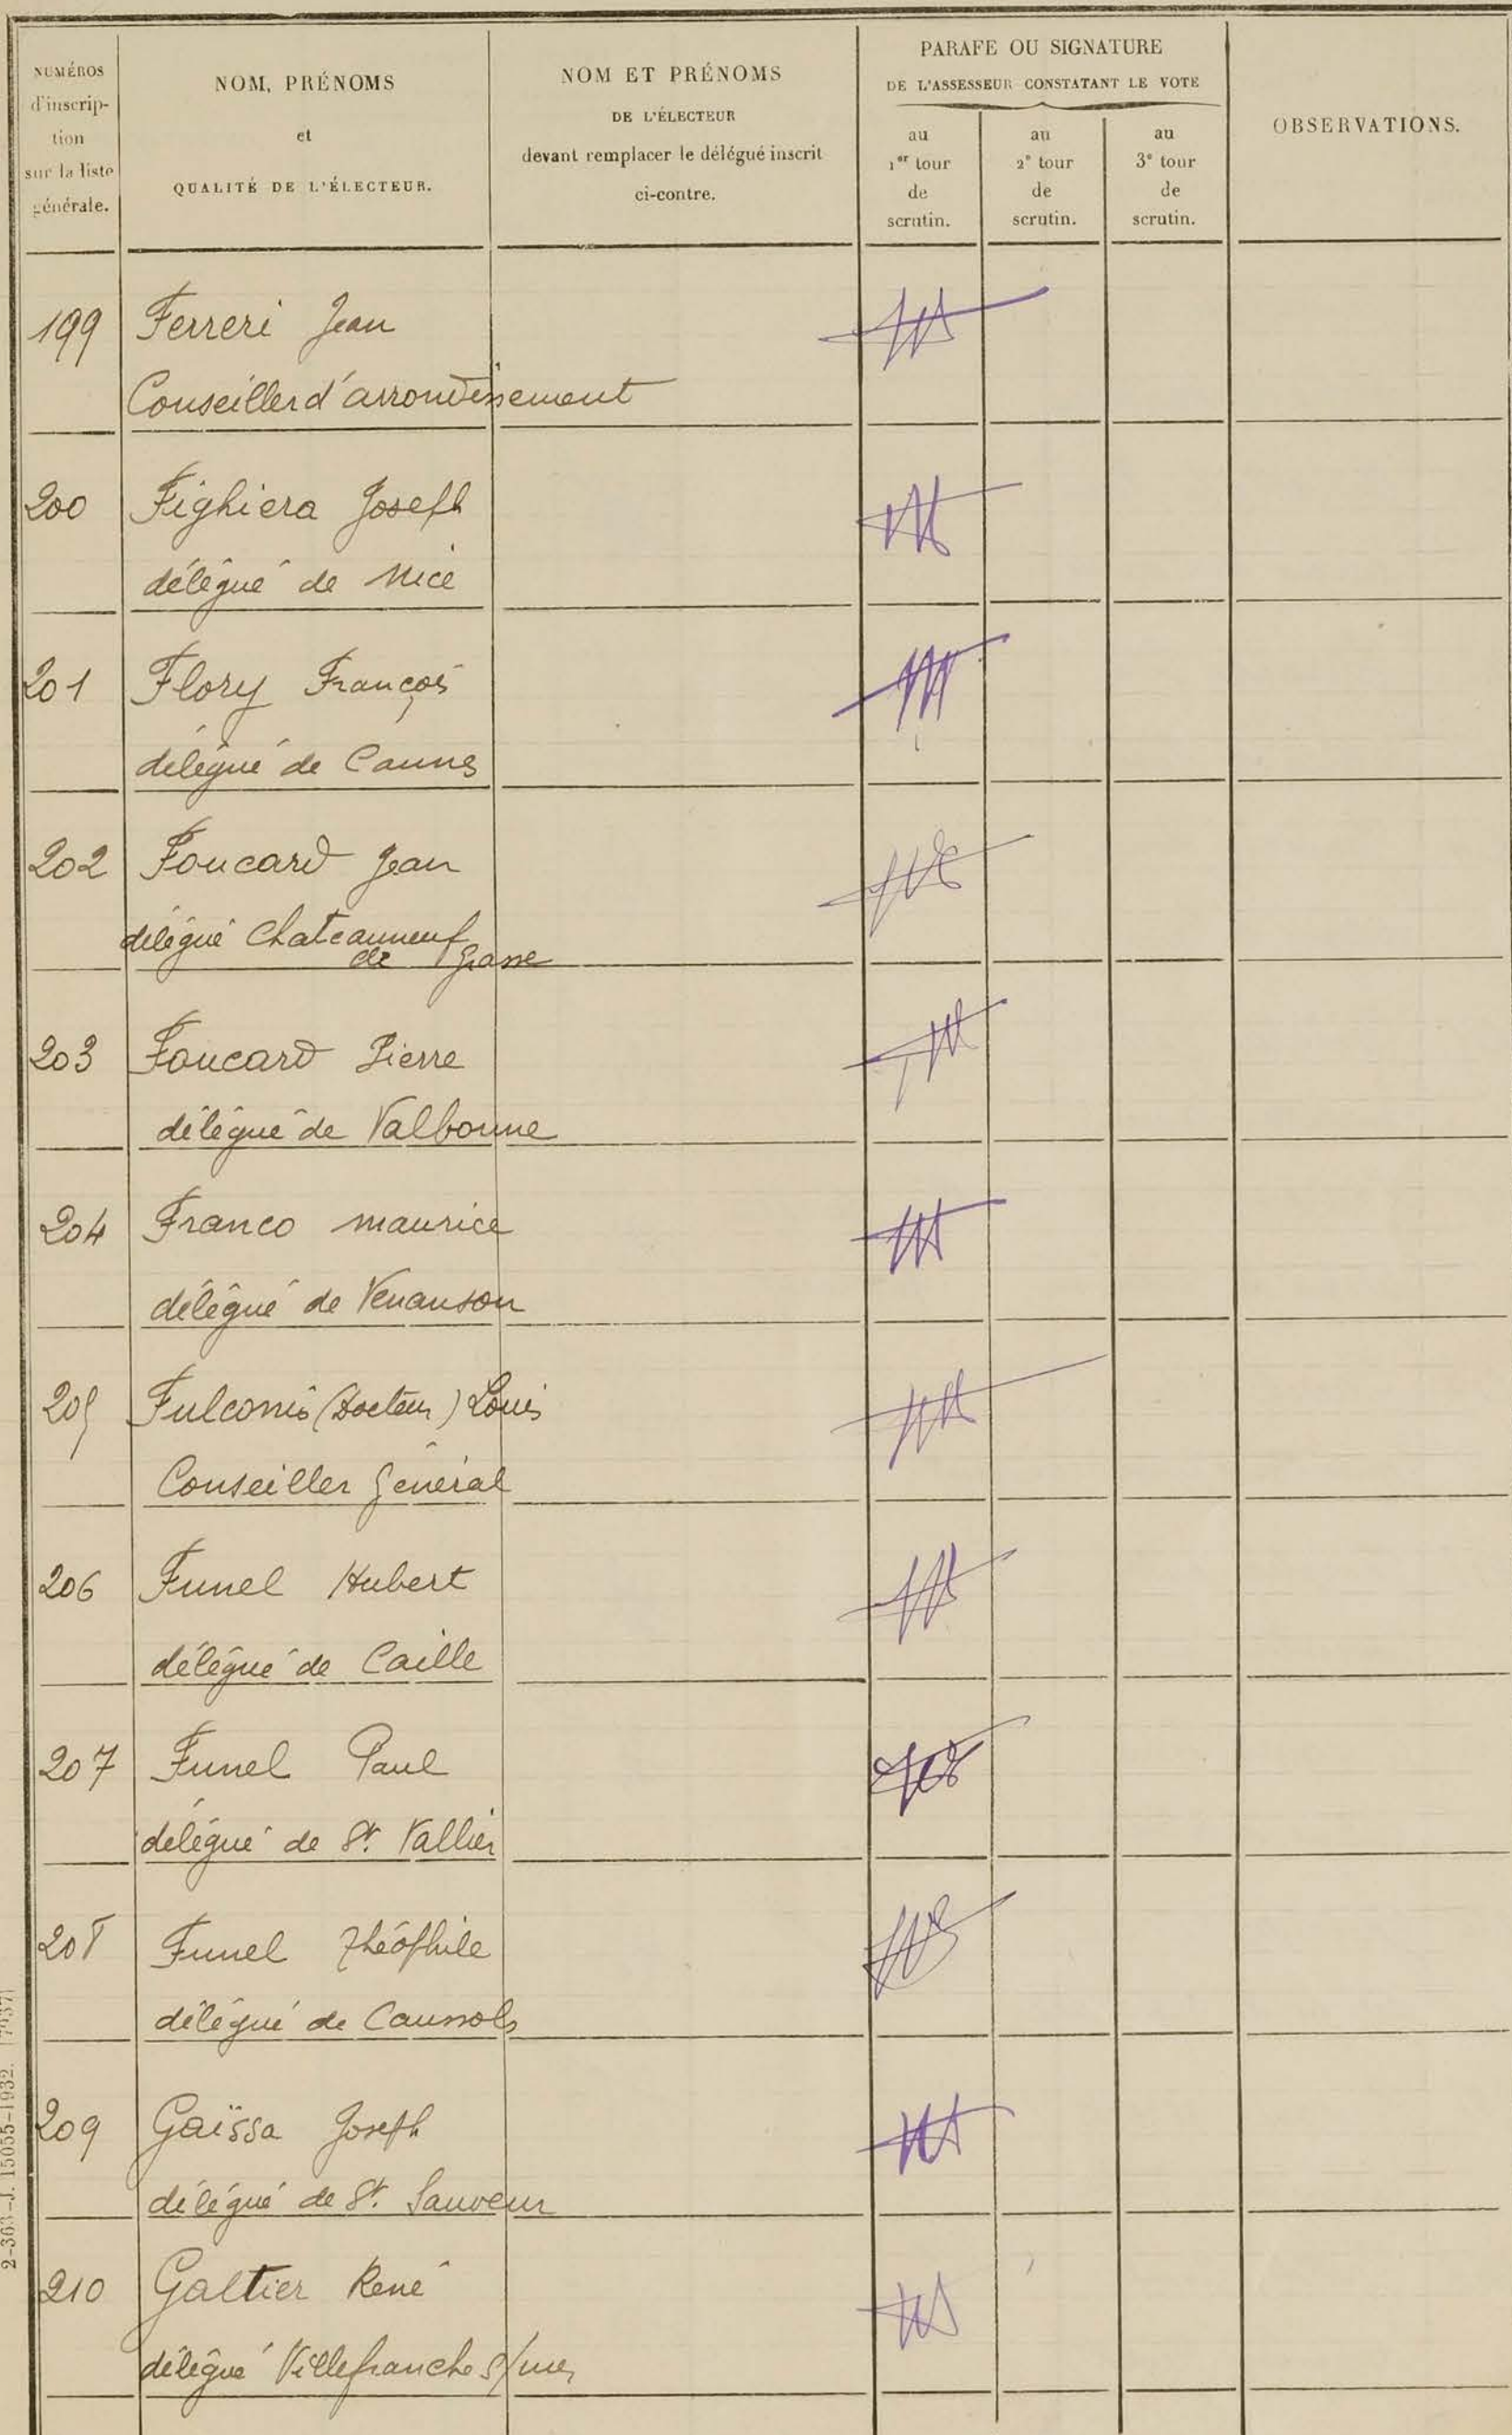 NUMÉROS
d'inscrip-
tion
sur la liste
générale.
NOM, PRÉNOMS
et
QUALITÉ DE L'ÉLECTEUR.
NOM ET PRÉNOMS
DE L'ÉLECTEUR
devant remplacer le délégué inscrit
ci-contre.
PARAFE OU SIGNATURE
DE L'ASSESSEUR CONSTATANT LE VOTE
au
1er tour
de
scrutin.
au
2e tour
de
scrutin.
au
3e tour
de
scrutin.
OBSERVATIONS.
199 Ferreri Jean
Conseiller d'arrondissement
200 Fighiera Joseph
délégué de Nice
201 Flory François
délégué de Cannes
202 Foucard Jean
délégué Chateauneuf
de Grasse
203 Foucard Pierre
délégué de Valbonne
204 Franco Maurice
délégué de Venanson
205 Fulconis (Docteur) Louis
Conseiller Général
206 Funel Hubert
délégué de Caille
207 Funel Paul
délégué de St. Vallier
208 Funel Théophile
délégué de Caussols
209 Gaïssa Joseph
délégué de St. Sauveur
210 Galtier René
délégué Villefranche s/mer
2-363-J. 15055-1932.